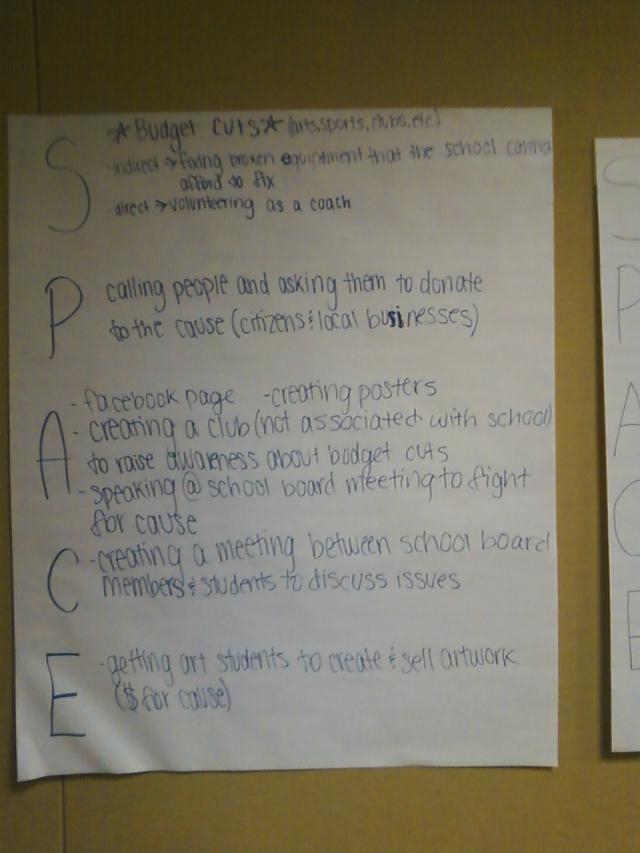 S ★Budget cuts★ (arts, sports, clubs, etc)
- indirect → fixing broken equiptment that the school cannot
afford to fix
- direct → volunteering as a coach
P calling people and asking them to donate
to the cause (citizens & local businesses)
- facebook page - creating posters
A - creating a club (not associated with school)
to raise awareness about budget cuts
- speaking @ school board meeting to fight
for cause
C - creating a meeting between school board
members & students to discuss issues
E - getting art students to create & sell artwork
($ for cause)
S
P
A
C
E